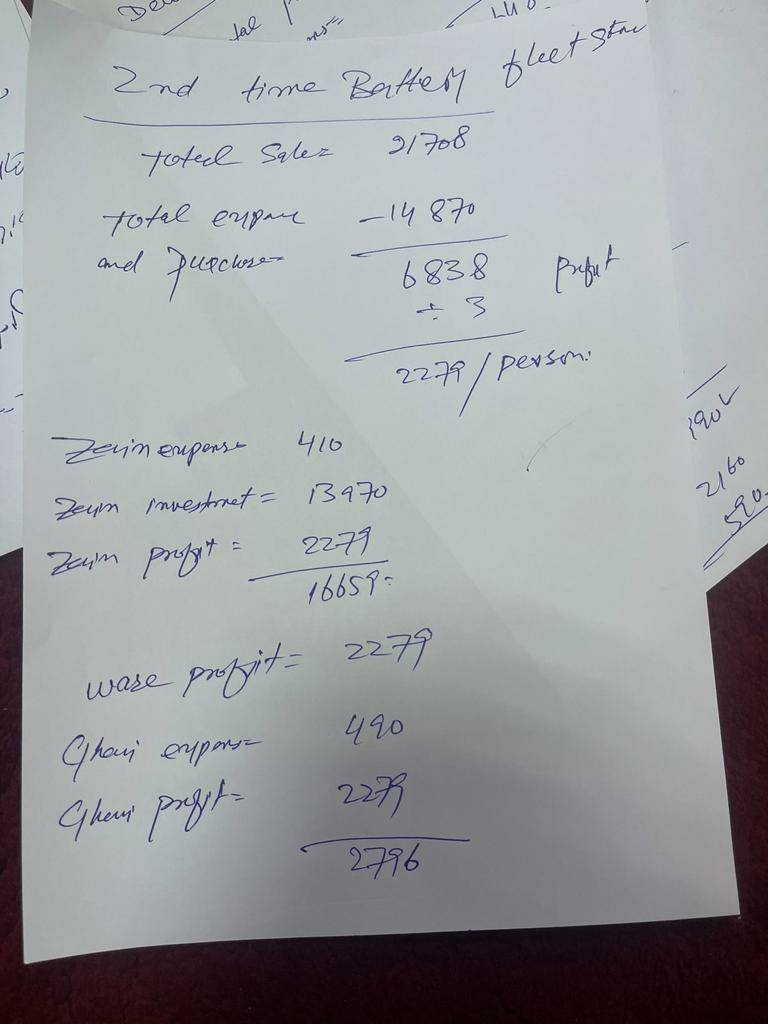 2nd time Battery fleet Star
Total Sale = 21708
Total expense -14870
and purchase =
6838 profit
÷ 3
2279 / person.
Zaim expense 410
Zaim investment = 13970
Zaim profit = 2279
16659
wase profit = 2279
Ghani expense 490
Ghani profit = 2279
2796
190
2160
590